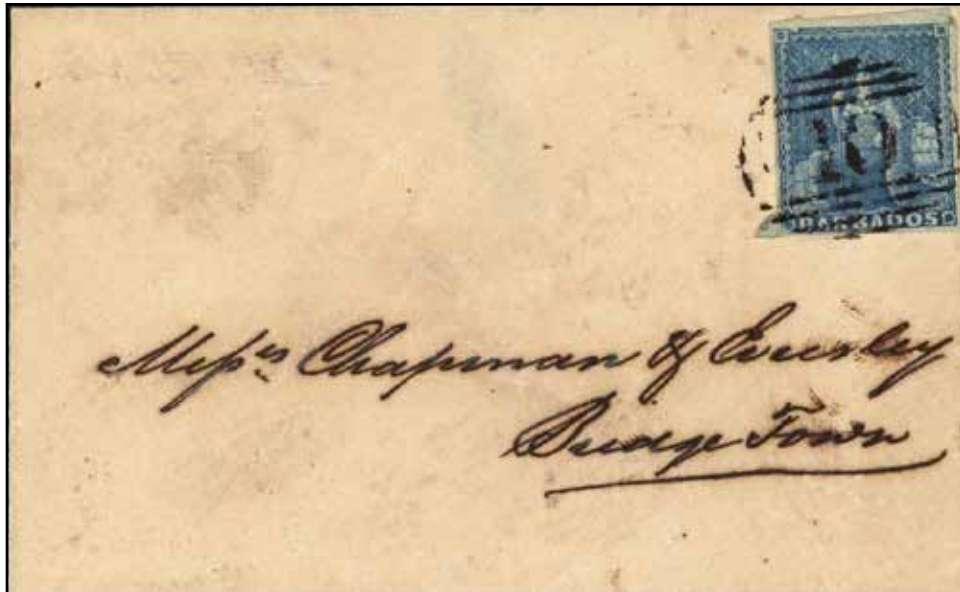 10
BARBADOS
Mess.rs Chapman & Eversley
Bridge Town